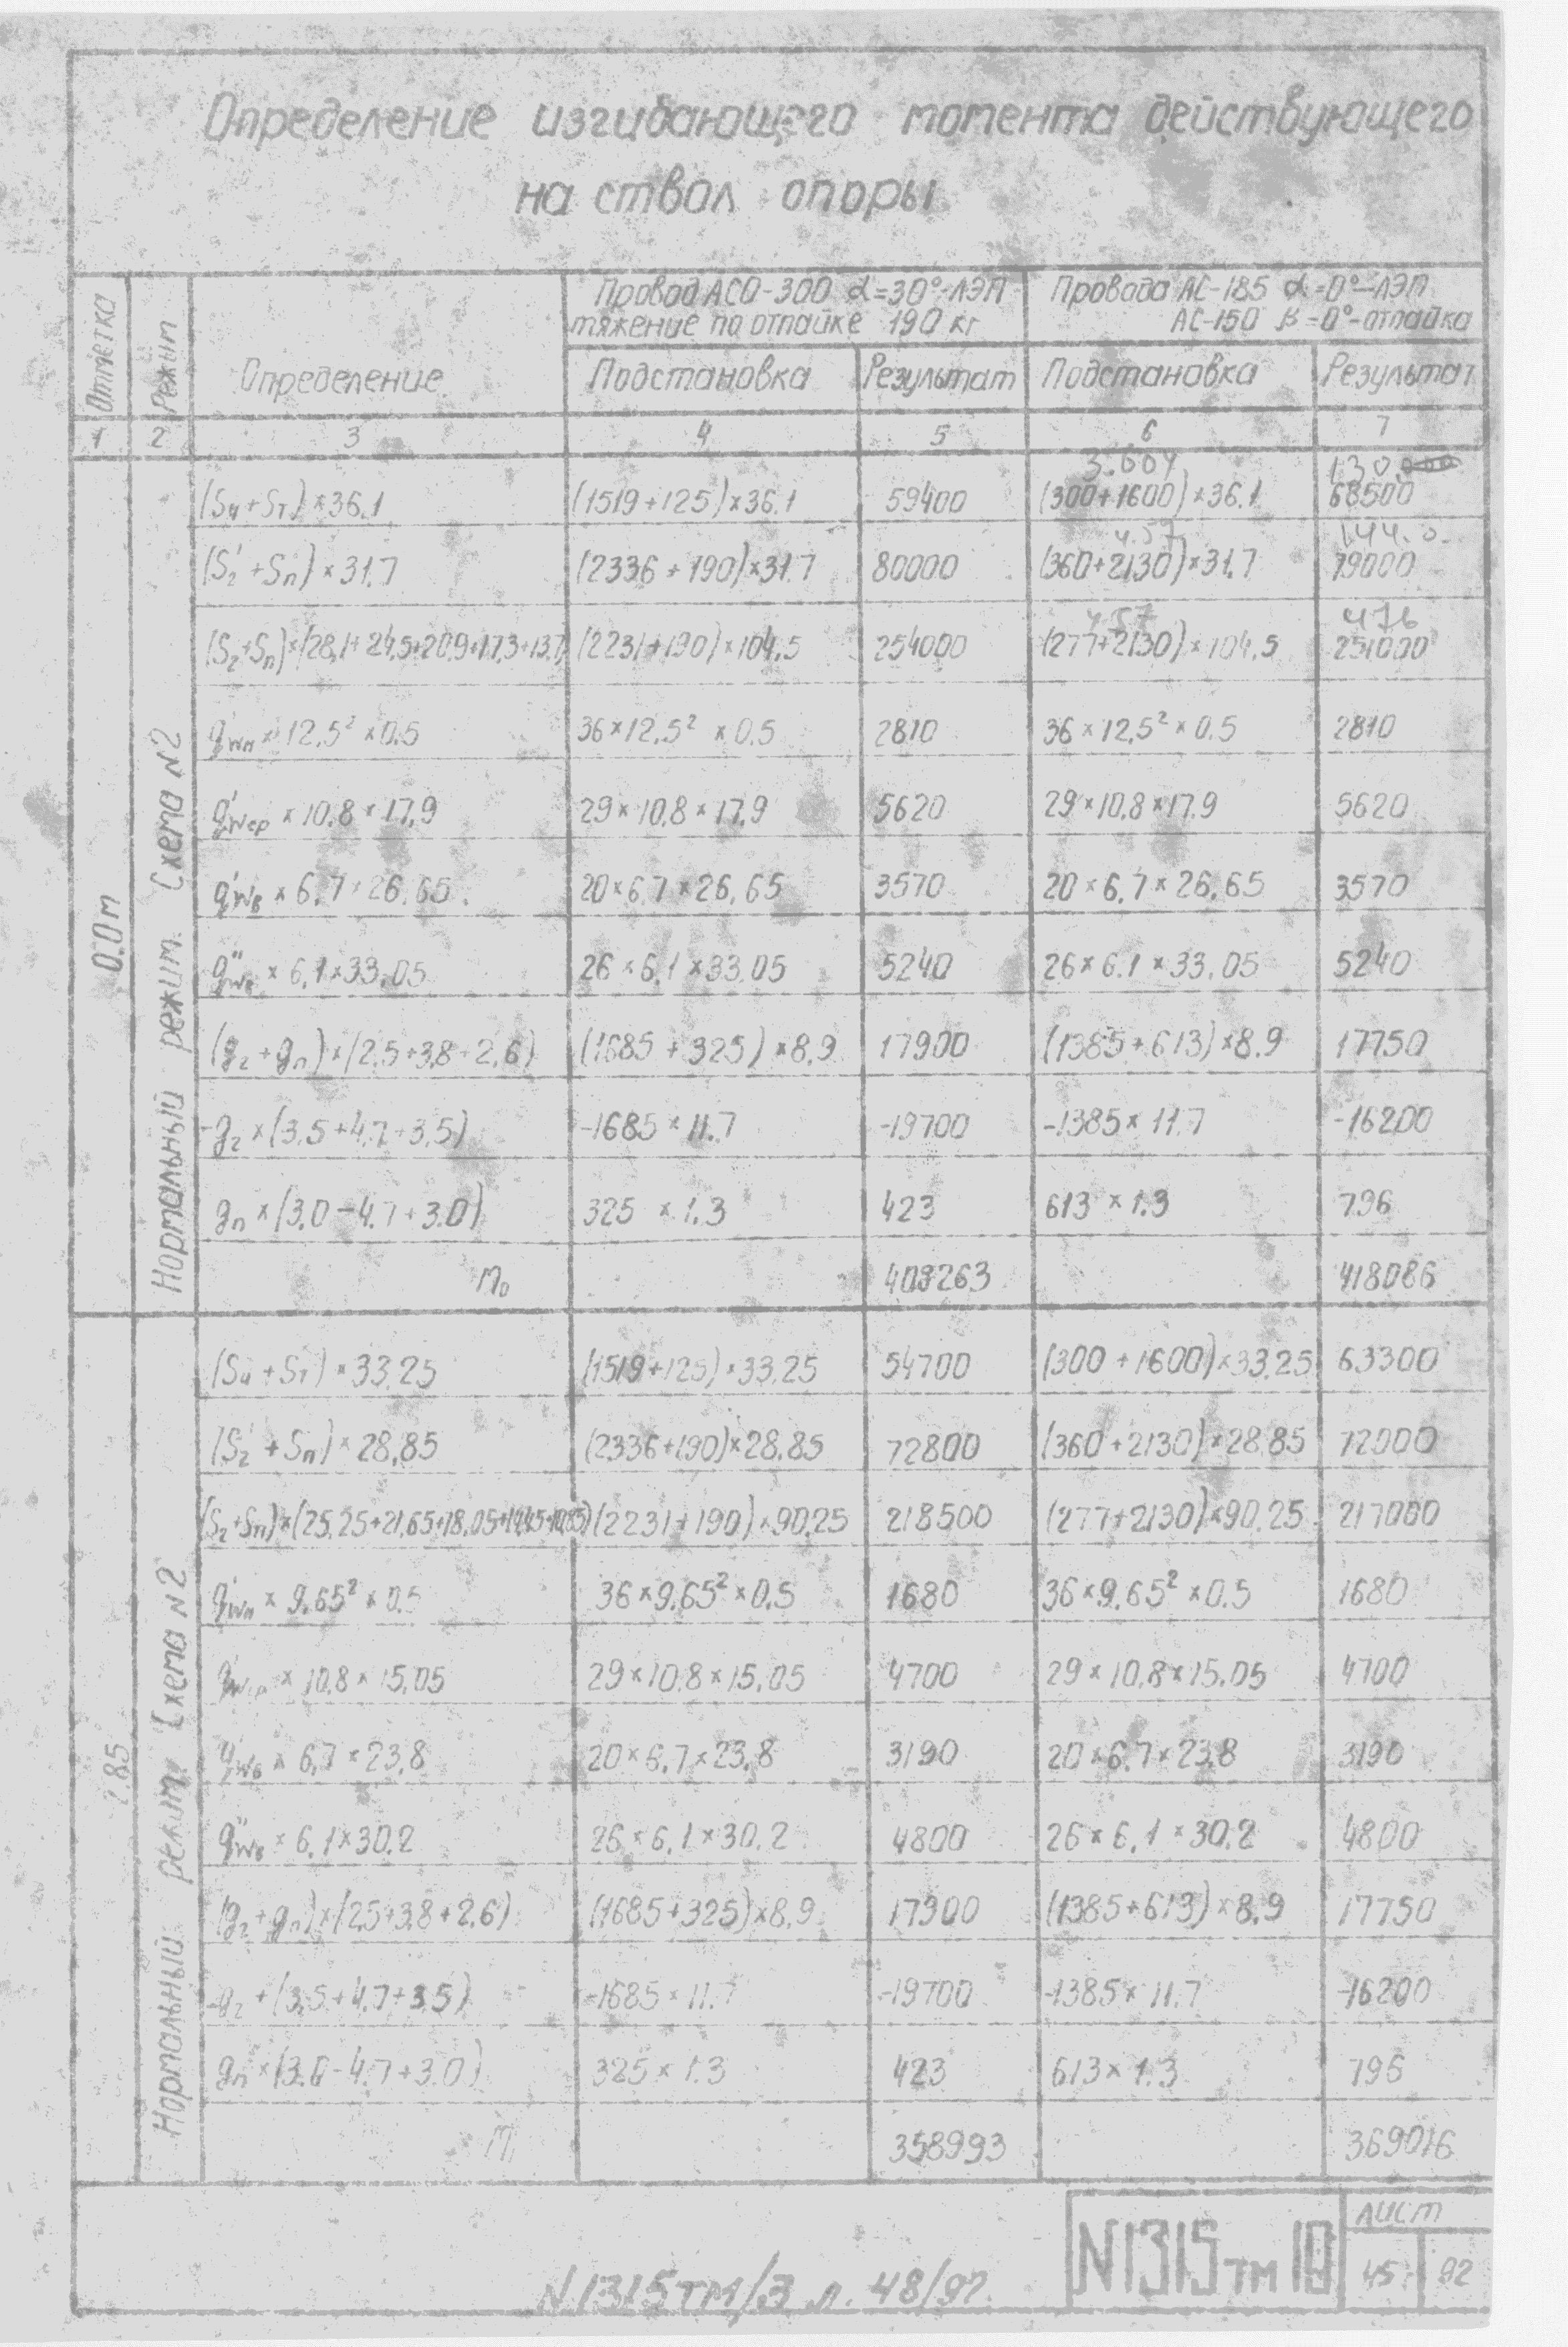 Определение изгибающего момента действующего
на ствол опоры.
Отметка
Режим
Определение
Провод АСО-300 α=30°-ЛЭП
тяжение по отпайке 190 кг
Провода АС-185 α=0°-ЛЭП
АС-150 β=0°-отпайка
Подстановка Результат Подстановка Результат
1 2 3 4 5 6 7
0.0м
Нормальный режим. Схема N2
3.604 130.
(Sч+Sт)×36.1 (1519+125)×36.1 59400 (300+1600)×36.1 68500
4.57 144.0.
(S'г+Sп)×31.7 (2336+190)×31.7 80000 (360+2130)×31.7 79000
4.57 476
(Sг+Sп)×(28,1+24,5+20,9+17,3+13,7) (2231+190)×104.5 254000 (277+2130)×104.5 251000
q'wн×12,5²×0.5 36×12.5²×0.5 2810 36×12,5²×0.5 2810
q'wср×10.8×17,9 29×10,8×17.9 5620 29×10.8×17.9 5620
q'wв×6,7×26,65. 20×6,7×26,65 3570 20×6,7×26,65 3570
q''wв×6,1×33,05 26×6.1×33,05 5240 26×6.1×33.05 5240
(gг+gп)×(2,5+3,8+2,6) (1685+325)×8,9 17900 (1385+613)×8.9 17750
-gг×(3,5+4,7+3,5) -1685×11.7 -19700 -1385×11.7 -16200
gп×(3.0-4.7+3.0) 325×1.3 423 613×1.3 796
M₀ 409263 418086
2.85
Нормальный режим. Схема N2
(Sч+Sт)×33,25 (1519+125)×33,25 54700 (300+1600)×33,25 63300
(S'г+Sп)×28,85 (2336+190)×28,85 72800 (360+2130)×28,85 72000
(Sг+Sп)×(25,25+21,65+18,05+14,45+10,85) (2231+190)×90,25 218500 (277+2130)×90,25 217000
q'wн×9,65²×0.5 36×9.65²×0.5 1680 36×9,65²×0.5 1680
q'wср×10,8×15,05 29×10.8×15,05 4700 29×10,8×15.05 4700
q'wв×6,7×23,8 20×6.7×23,8 3190 20×6.7×23.8 3190
q''wв×6,1×30.2 26×6,1×30.2 4800 26×6,1×30.2 4800
(gг+gп)×(2,5+3,8+2,6) (1685+325)×8,9 17900 (1385+613)×8,9 17750
-gг+(3,5+4.7+3,5) -1685×11.7 -19700 -1385×11.7 -16200
gп×(3.0-4.7+3.0) 325×1.3 423 613×1.3 796
M 358993 369016
N1315тм/3 л. 48/92
N1315тм 10
Лист
45 92